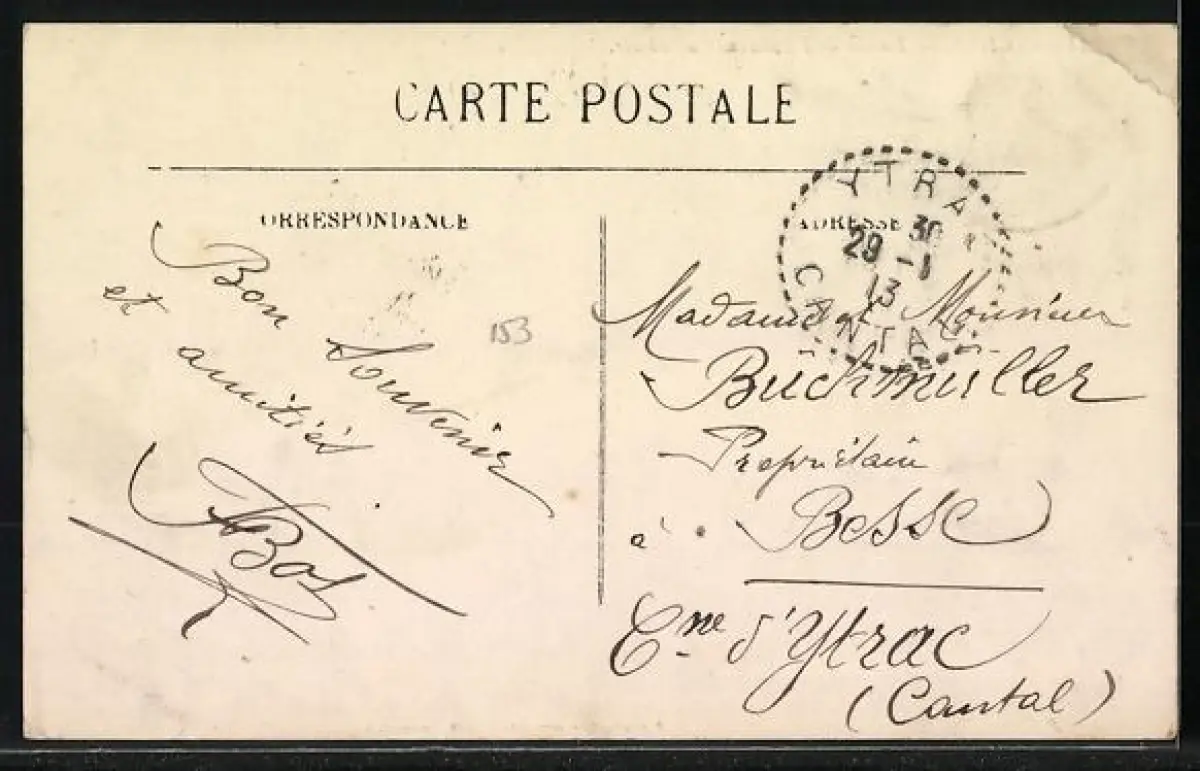 CARTE POSTALE
CORRESPONDANCE
Bon Souvenir
et amitiés
ABos
153
ADRESSE
YTRAC
30
29 -1
13
CANTAL
Madame et Monsieur
Büchmüller
Propriétaire
à Besse
Cne d'Ytrac
(Cantal)